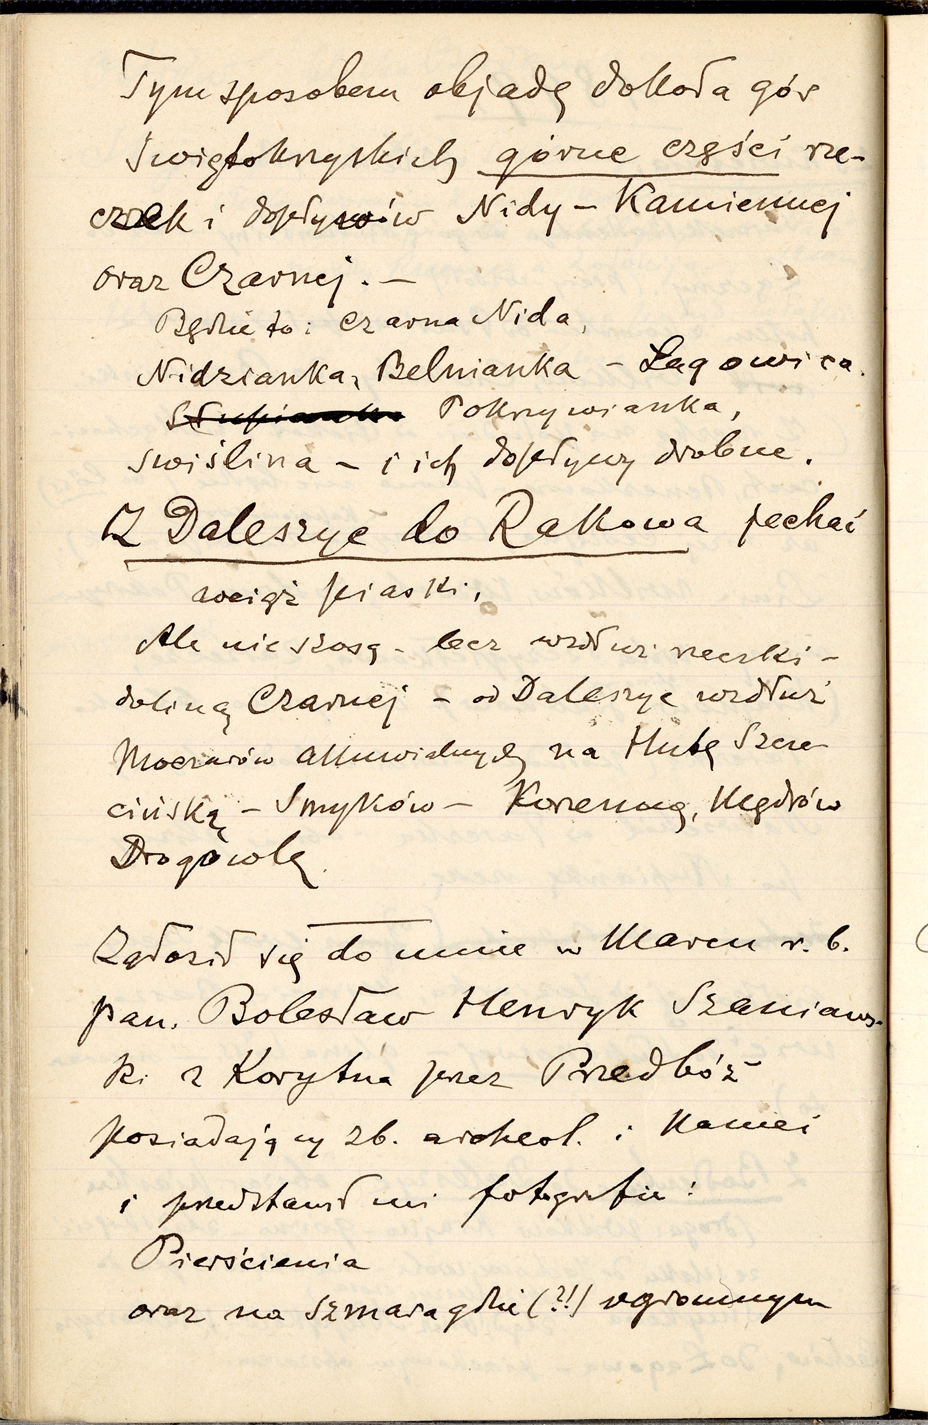 Tym sposobem objadę dokoła gór
Świętokrzyskich górne części rze-
czek i dopływów Nidy – Kamiennej
oraz Czarnej. –
Będzie to: Czarna Nida,
Nidzianka, Belnianka – Łagowica.
Słupianka Pokrzywianka,
Świślina – i ich dopływy drobne.
Z Daleszyc do Rakowa jechać
wciąż piaski,
Ale nie szosą – lecz wzdłuż rzeczki –
doliną Czarnej – od Daleszyc wzdłuż
Moczarów alluwialnych na Hutę Szcze-
cińską – Smyków – Korzenną, Węgdrów
Drogowlę.
Zgłosił się do mnie w Marcu r. b.
pan. Bolesław Henryk Szaniaws-
ki z Korytna przez Przedbóż
posiadający zb. archeol. i kamei
i przedstawił mi fotografie:
Pierścienia
oraz na szmaragdzie (?!) ogromnym